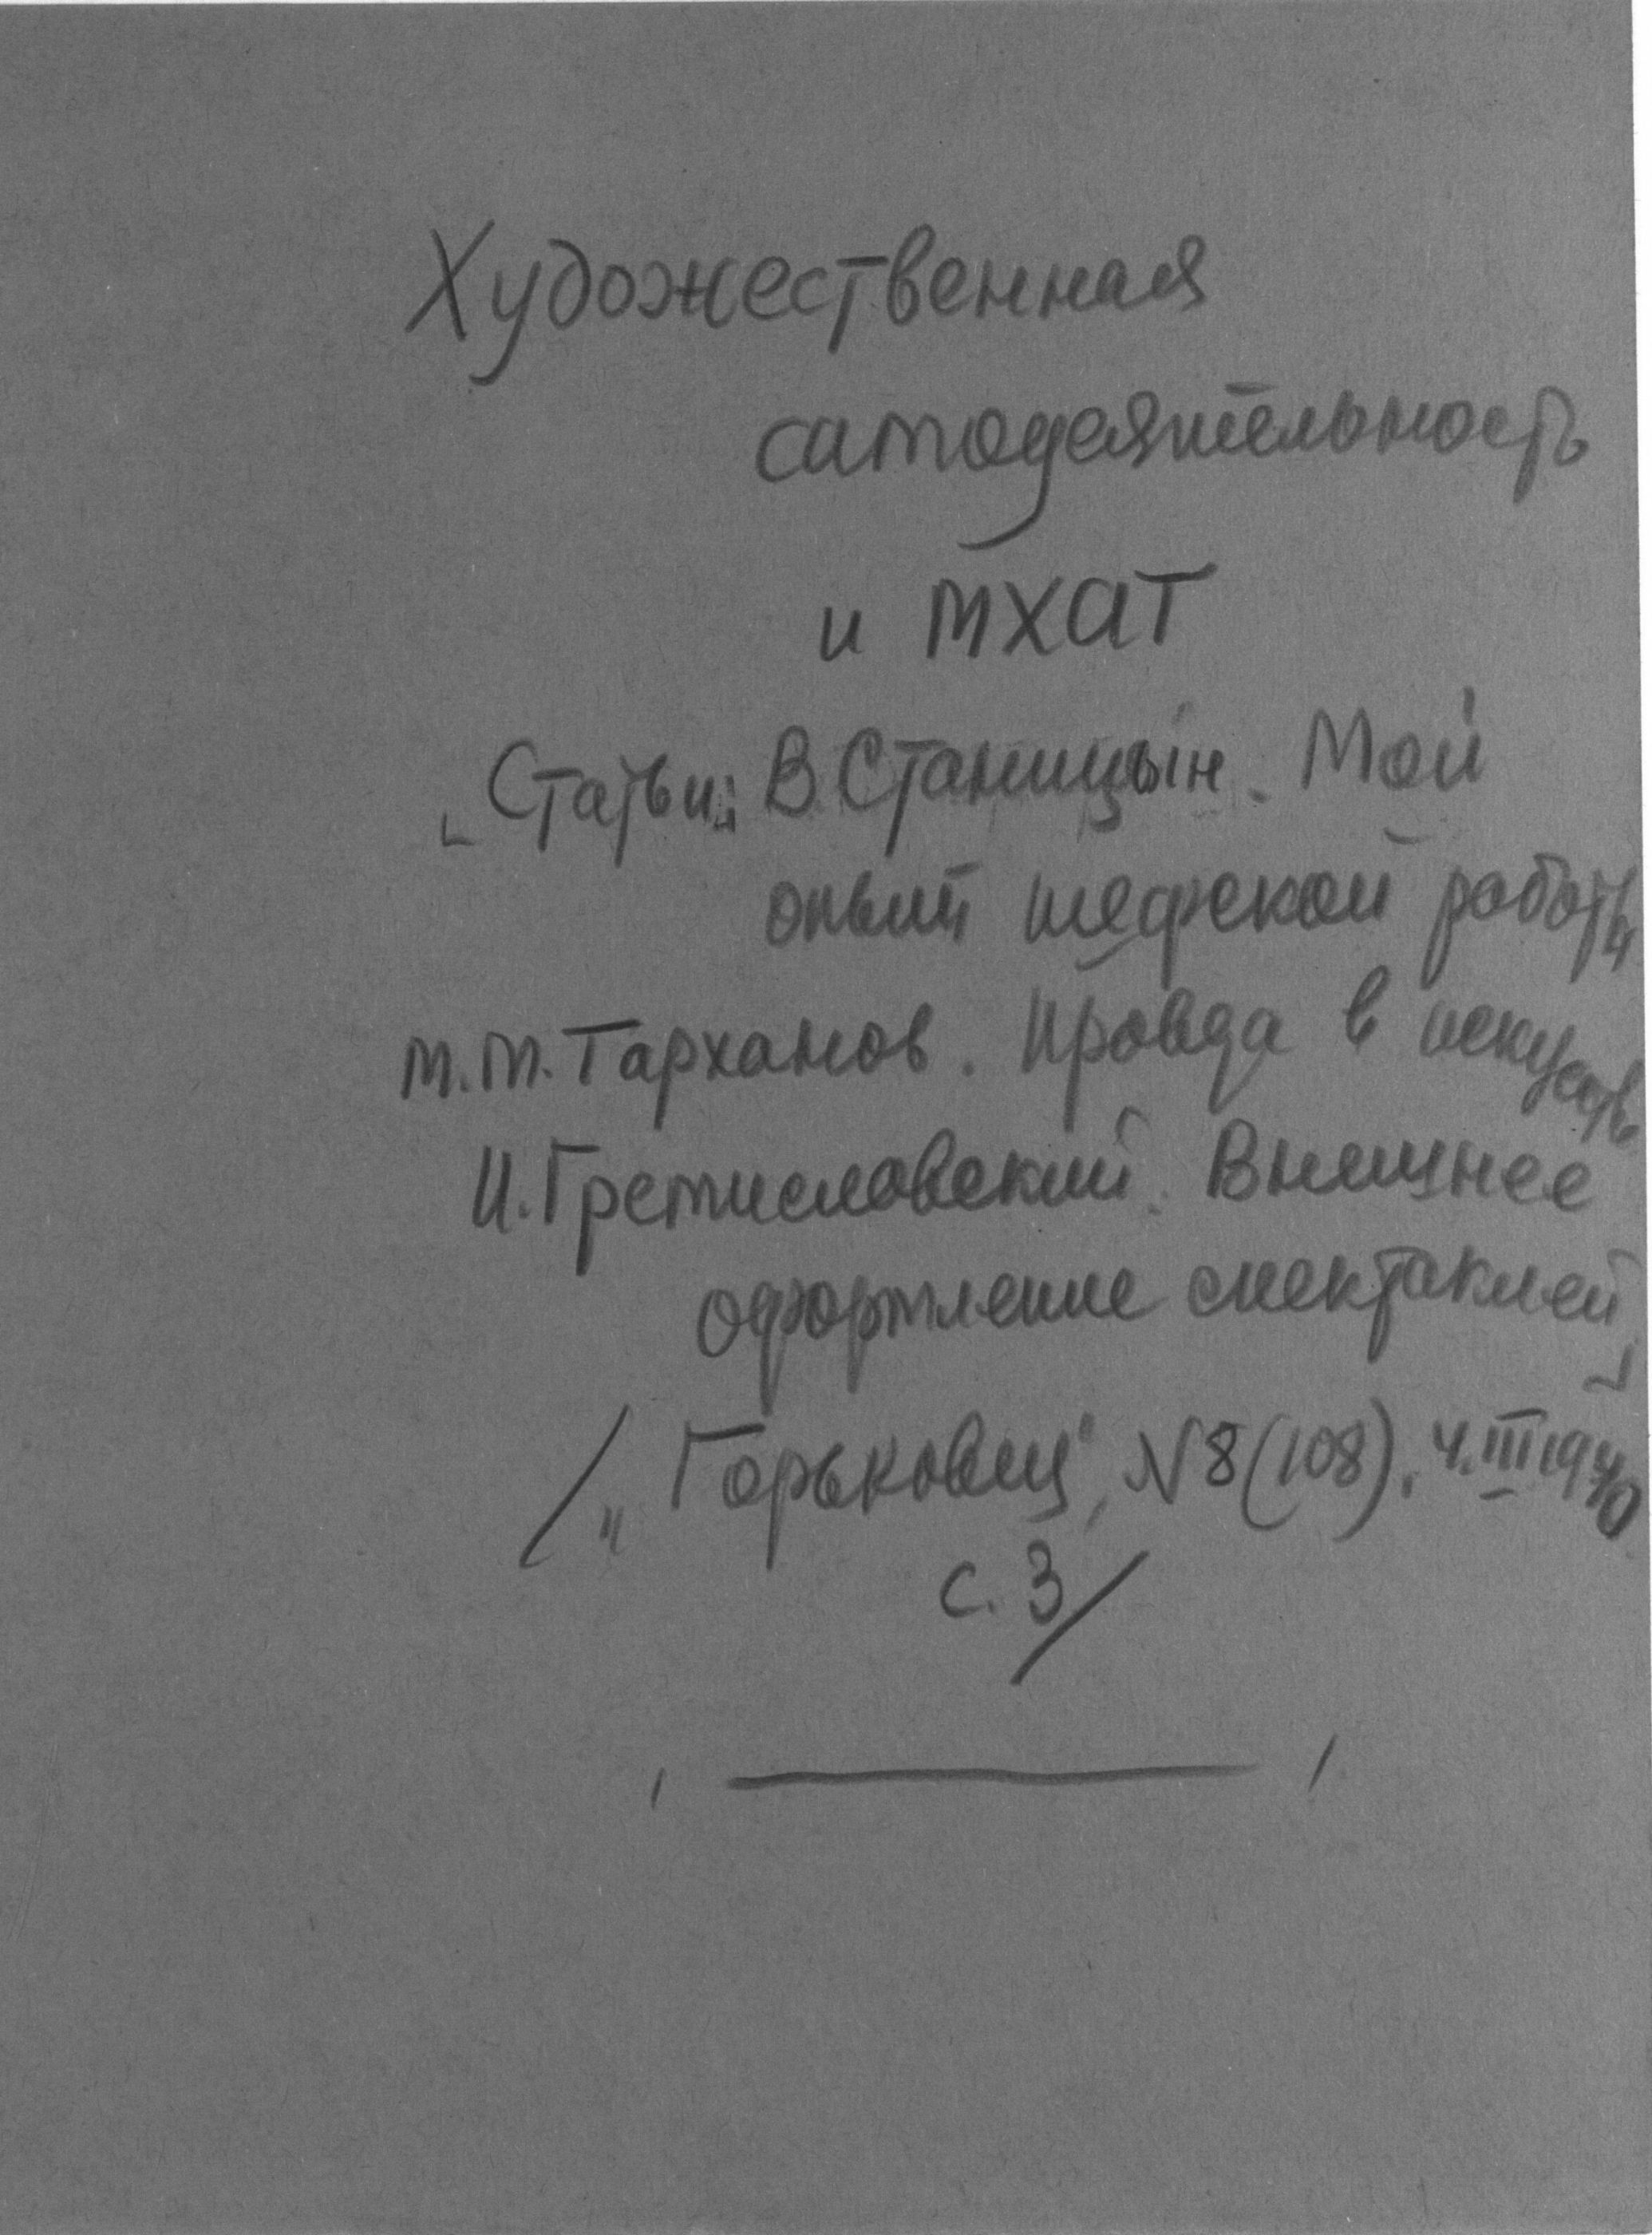 Художественная
самодеятельность
и МХАТ
[Статьи: В. Станицын. Мой
опыт шефской работы
М.М. Тарханов. Правда в искусстве
И. Гремиславский. Внешнее
оформление спектаклей]
/„Горьковец", N8(108), 4.III.1940
с. 3/